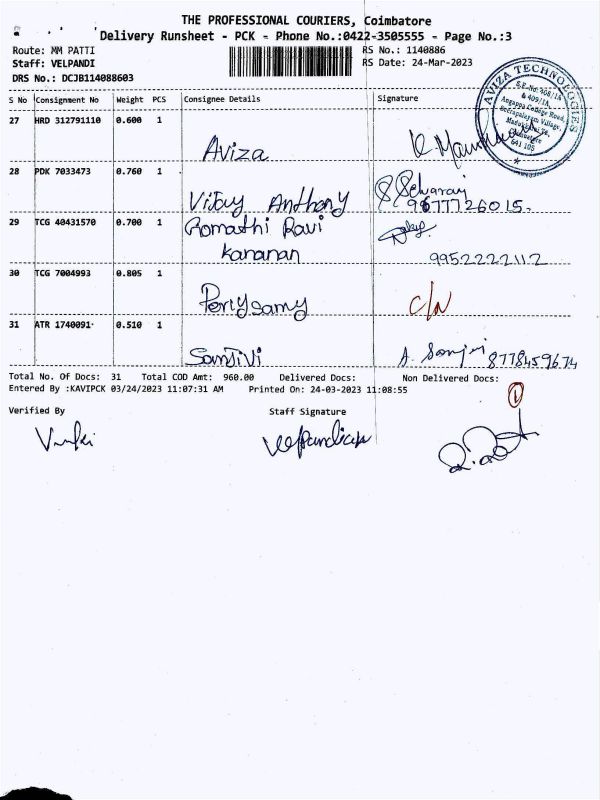 THE PROFESSIONAL COURIERS, Coimbatore
Delivery Runsheet - PCK - Phone No.:0422-3505555 - Page No.:3
Route: MM PATTI RS No.: 1140886
Staff: VELPANDI RS Date: 24-Mar-2023
DRS No.: DCJB114088603
AVIZA TECHNOLOGIES
S.F.No: 408/1A
& 409/1A,
Angappa College Road,
641 105
S No Consignment No Weight PCS Consignee Details Signature
27 HRD 312791110 0.600 1
Aviza
28 PDK 7033473 0.760 1
Vijay Anthony S Selvaraj
9677726015.
29 TCG 40431570 0.700 1 Gomathi Ravi
kananan 9952222112
30 TCG 7004993 0.805 1
Periysamy C/N
31 ATR 1740091 0.510 1
Sanjivi A. Sanjivi 8778459674
Total No. Of Docs: 31 Total COD Amt: 960.00 Delivered Docs: Non Delivered Docs:
Entered By :KAVIPCK 03/24/2023 11:07:31 AM Printed On: 24-03-2023 11:08:55
1
Verified By Staff Signature